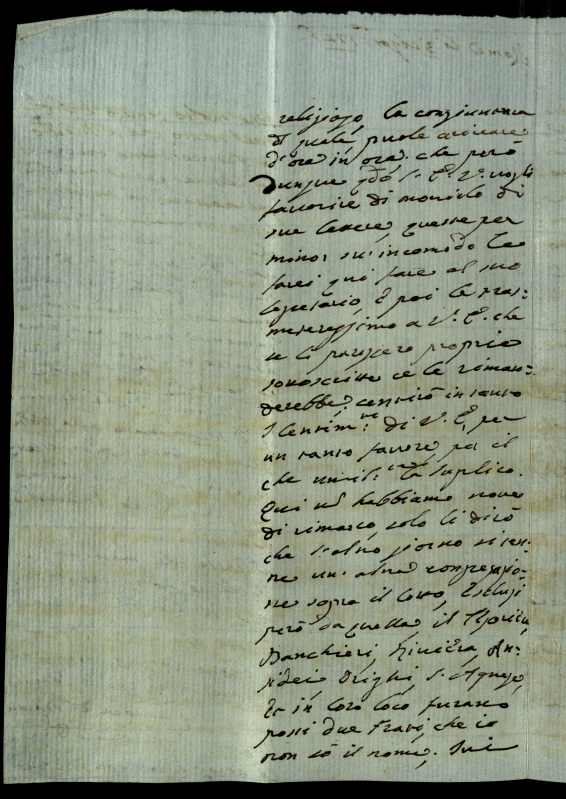 religioso, la congiuntura
di quale puole arrivare
d'ora in ora. che però
dunque q.do S. E. V.a vogli
favorire di monirlo di
sue lettere, queste per
minor su' incomodo le
farei qui fare al suo
segretario, e poi le tras=
metteressimo a V. E. che
se li paressero proprie
sottoscritte ce le riman=
derebbe, centirò in tanto
di V. E. per
un tanto favore per il
che la suplico.
Qui non habbiamo nove
di rimarco, solo li dirò
che l'altro giorno si ten=
ne un'altra congregatio=
ne sopra il Lotto, Esclusi
però da quella, il
Banchieri, Riviera, An=
sidei Orighi, S. Agnese,
Et in loro loco furano
posti due Frati, che io
non sò il nome. Sui